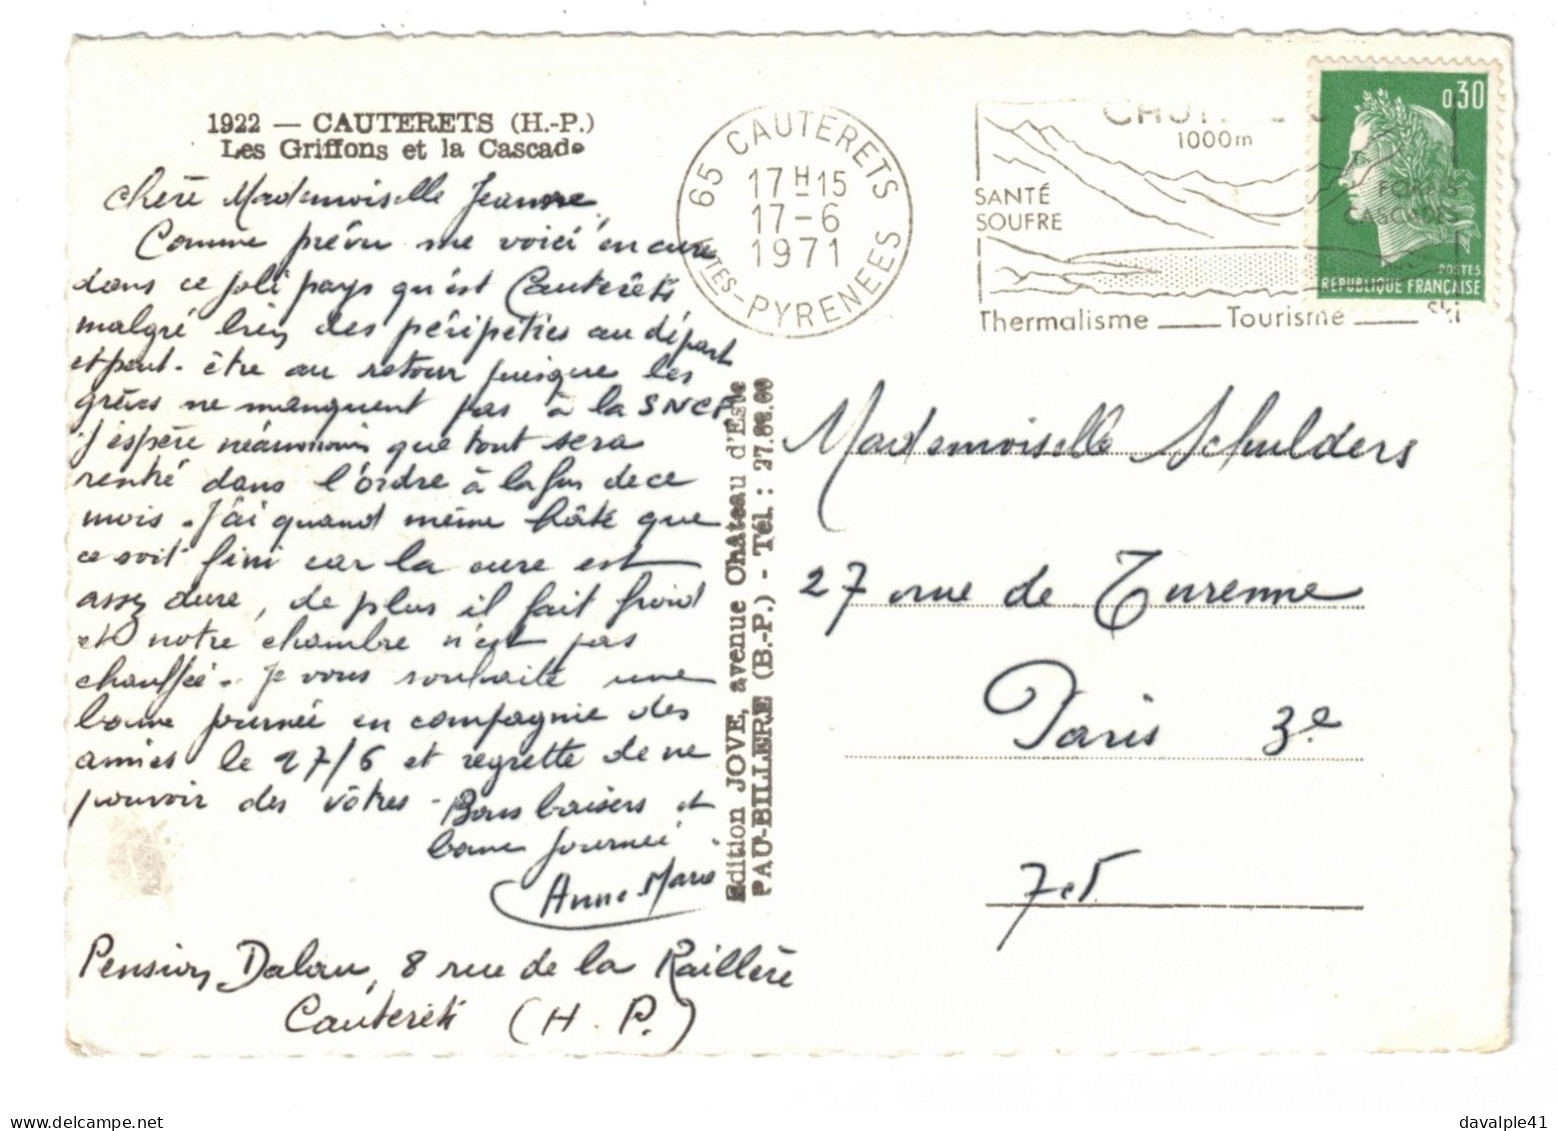 1922 — CAUTERETS (H.-P.)
Les Griffons et la Cascade
Chère Mademoiselle Jeanne
Comme prévu me voici en cure
dans ce joli pays qu'est Cauterêts
malgré bien des péripéties au départ
et peut-être au retour puisque les
grèves ne manquent pas à la SNCF
j'espère néanmoins que tout sera
rentré dans l'ordre à la fin de ce
mois. J'ai quand même hâte que
ce soit fini car la cure est
assez dure, de plus il fait froid
et notre chambre n'est pas
chauffée. Je vous souhaite une
bonne journée en compagnie des
amies le 27/6 et regrette de ne
pouvoir des vôtres.
Bons baisers et
bonne journée
Anne Marie
Pension Dalou, 8 rue de la Raillère
Cauterêts (H. P.)
Edition JOVE, avenue Château d'Este
PAU-BILLERE (B.-P.) - Tél. :
65 CAUTERETS
17H15
17-6
1971
HTES-PYRENEES
1000m
SANTÉ
SOUFRE
FORETS
CASCADES
Thermalisme ___ Tourisme ___ Ski
0,30
POSTES
REPUBLIQUE FRANÇAISE
Mademoiselle Schulders
27 rue de Turenne
Paris 3e
davalple41